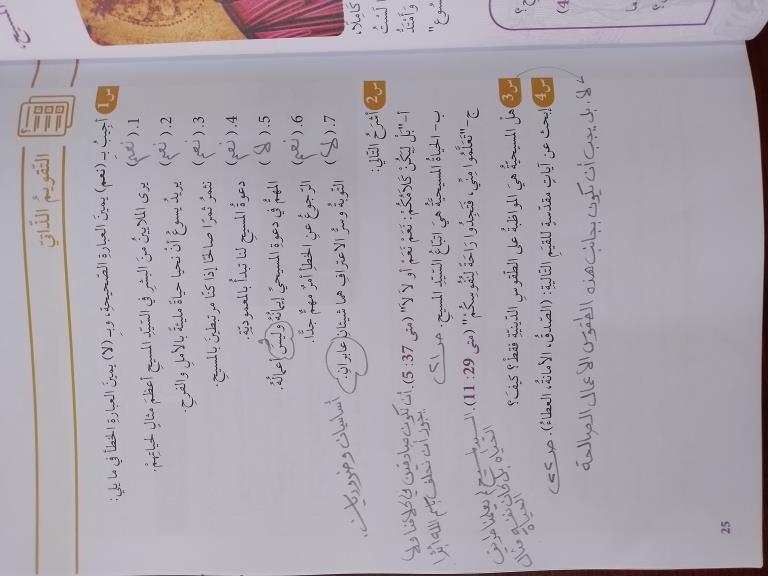 التقويمُ الذّاتي
س1 أُجيبُ بِـ (نعم) يمينَ العبارةِ الصّحيحةِ، وبِـ (لا) يمينَ العبارةِ الخطأ في ما يلي:
1. (نعم) يرى الملايينُ منَ البشرِ في السّيّدِ المسيحِ أعظمَ مثالٍ لحياتِهِمْ.
2. (نعم) يريدُ يسوعُ أنْ نحيا حياةً مليئةً بالأملِ والفرحِ.
3. (نعم) نثمرُ ثمرًا صالحًا إذا كنّا مرتبطينَ بالمسيحِ.
4. (نعم) دعوةُ المسيحِ لنا تبدأُ بالمعموديّة.
5. (لا) المهمُّ في دعوةِ المسيحيِّ إيمانُهُ وليسَ أعمالُهُ.
6. (نعم) الرّجوعُ عنِ الخطأِ أمرٌ مهمٌّ جدًّا.
7. (لا) التّوبةُ وسرُّ الاعترافِ هما شيئانِ عابرانِ.
أساسيان وضروريان.
س2 أشرحُ التّالي:
أ- "بَلْ لِيَكُنْ كَلَامُكُمْ: نَعَمْ نَعَمْ أو لَا لَا" (متى 37: 5). أن نكون صادقين في كلامنا ولا
يجوز أن نحلف باسم الله أبدًا
ب- الحياةُ المسيحيّةُ هيَ اتّباعُ السّيّدِ المسيحِ. ص٢١
ج- "تَعَلَّمُوا مِنِّي، فَتَجِدُوا رَاحَةً لِنُفُوسِكُمْ." (متى 29: 11). السيد المسيح لم يعلمنا طريق
الحياة بل كان نفسه مثال
الحياة
س3 هلِ المسيحيّةُ هيَ المواظبةُ على الطّقوسِ الدّينيّةِ فقطْ؟ كيفَ؟
س4 إبحث عن آياتٍ مقدّسةٍ للقيمِ التّاليةِ: (الصّدقُ، الأمانةُ، العطاءُ). ص٢٢
لا. بل يجب أن يكون بجانب هذه الطقوس الأعمال الصالحة
25